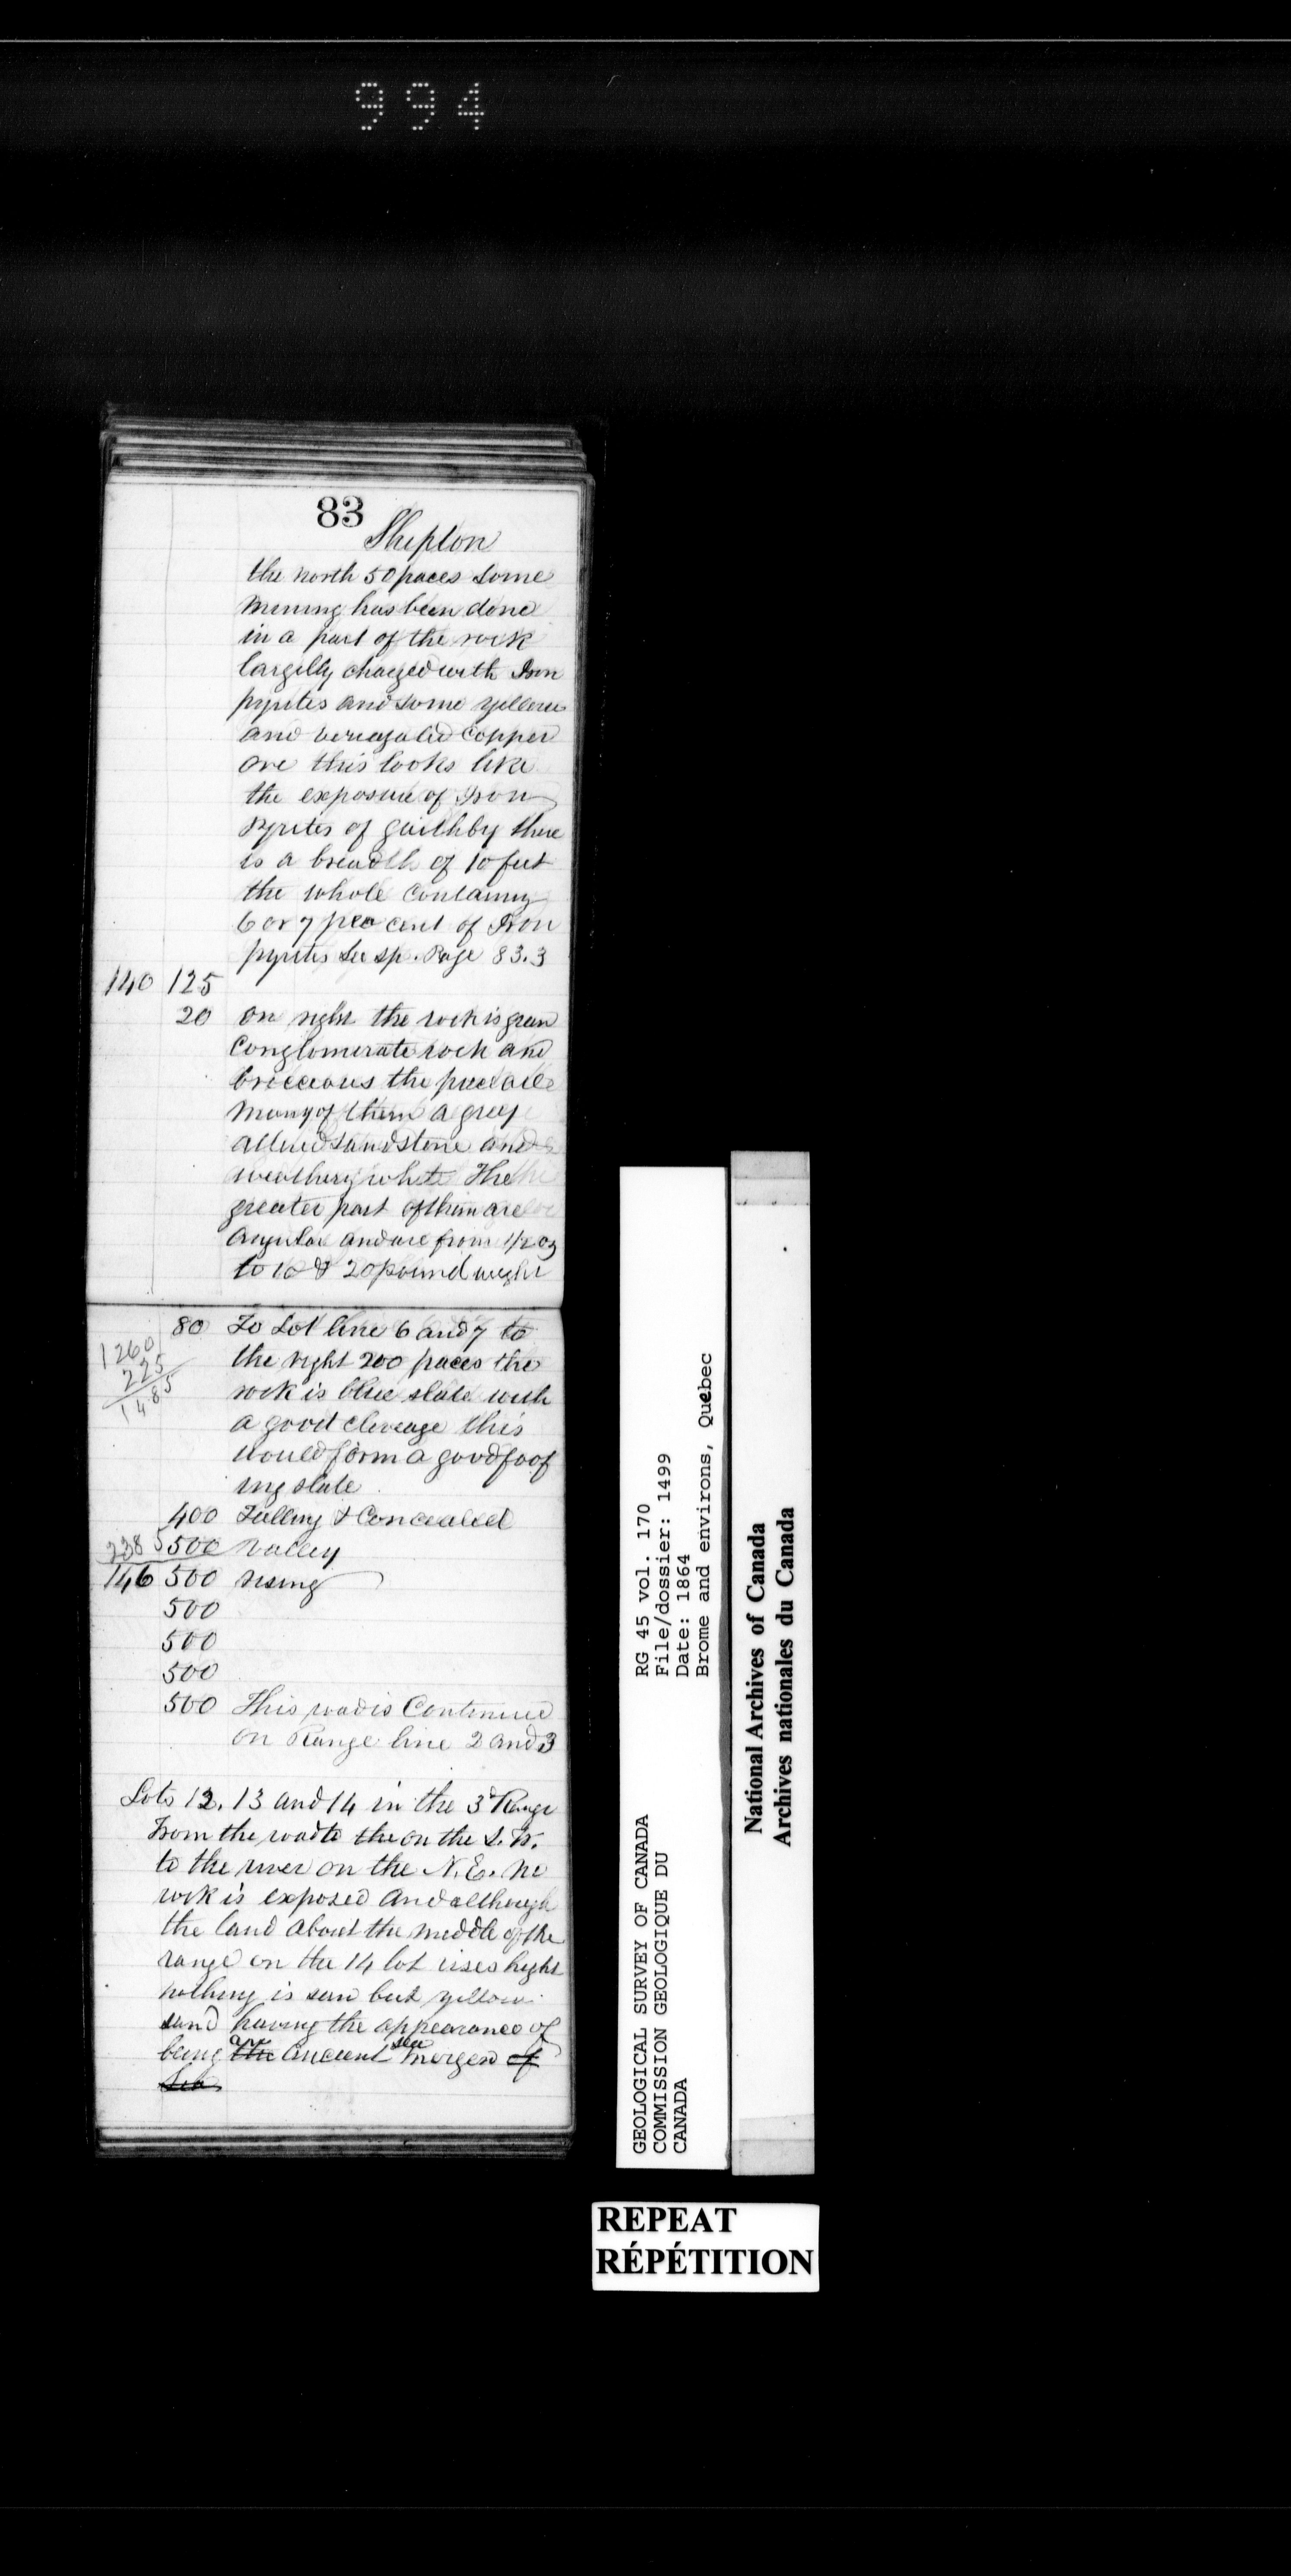 994
83
Shipton
the north 50 paces some
mining has been done
in a part of the rock
largelly charged with Iron
pyrites and some yellow
and veriagated copper
ore this looks like
the exposure of Iron
pyrites of garthby there
is a breadth of 10 feet
the whole containing
6 or 7 per cent of Iron
pyrites See sp. Page 83.3
140 125
20 on right the rock is green
conglomerate rock and
the
many of them a grey
sandstone and
weathering white The
greater part of them are
angular and are from 1/2 oz
to 10 & 20 pound weight
80 To Lot line 6 and 7 to
1260
225
1485
the right 200 paces the
rock is blue slate with
a good cleveage this
would form a good foof
ing slate
400 Falling & Concealed
2385 500 valley
146 500 rising
500
500
500
500 This road is Continued
on Range line 2 and 3
Lots 12. 13 and 14 in the 3d Range
From the road to the on the S. W.
to the river on the N.E. no
rock is exposed and although
the land about the middle of the
range on the 14 lot rises hight
nothing is seen but yellow
sand having the appearance of
being the an ancient sea mergen of
Sea
RG 45 vol. 170
File/dossier: 1499
Date: 1864
Brome and environs, Quebec
GEOLOGICAL SURVEY OF CANADA
COMMISSION GEOLOGIQUE DU
CANADA
National Archives of Canada
Archives nationales du Canada
REPEAT
RÉPÉTITION